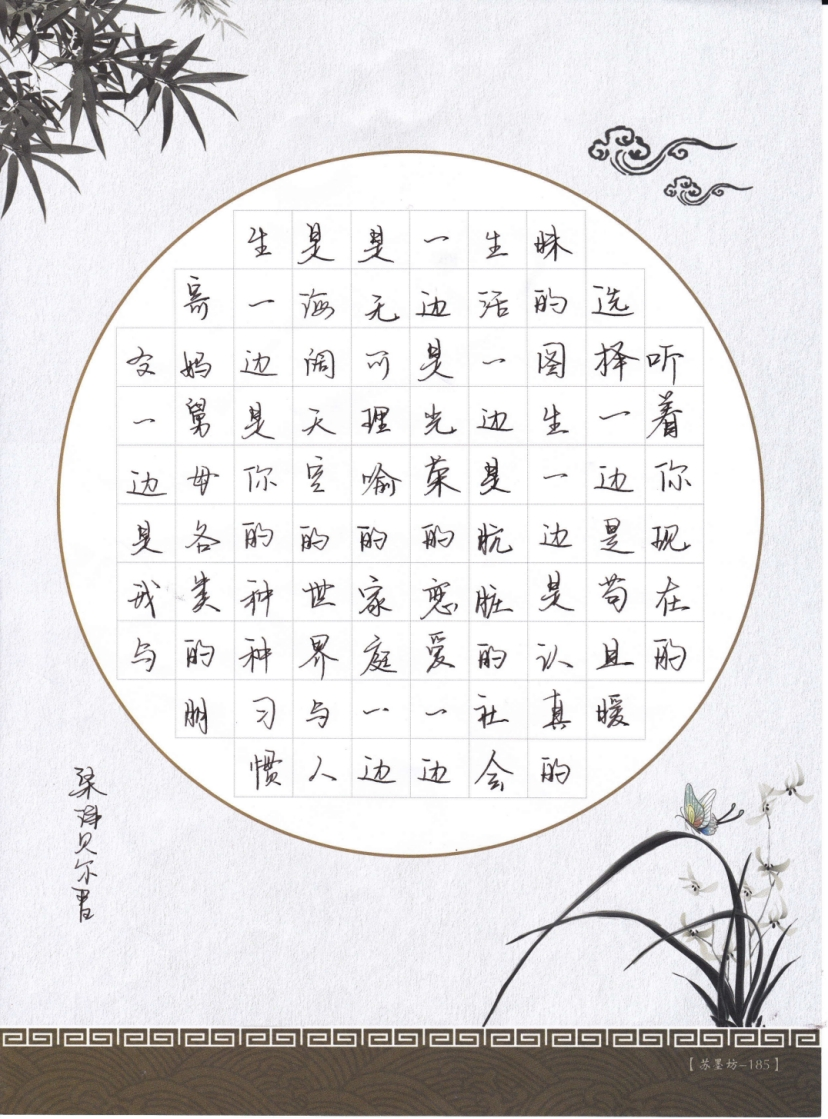 听着你现在的
选择一边是苟且暖
昧的图生一边是认真的
生活一边是肮脏的社会
一边是光荣的恋爱一边
是无可理喻的家庭一边
是海阔天空的世界与人
生一边是你的种种习惯
寄妈舅母各类的朋
友一边是我与
贝尔书
【苏墨坊-185】